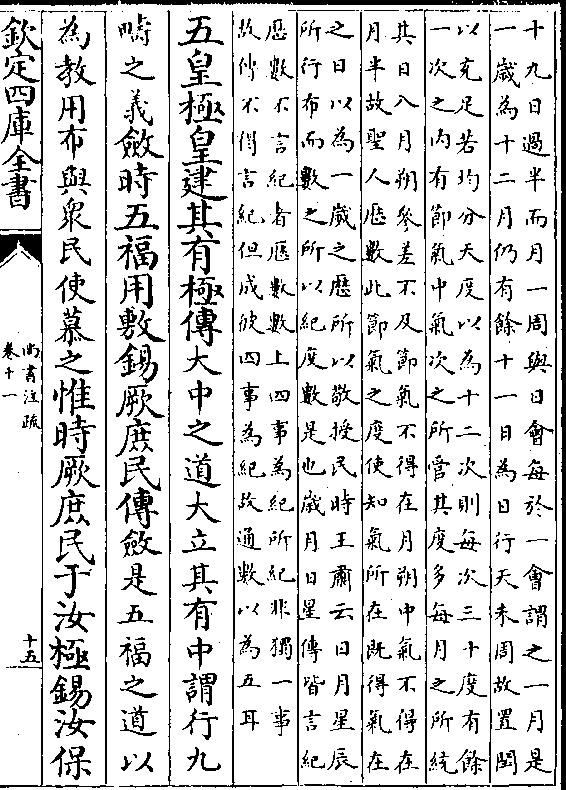 十九日過半而月一周與日會每於一會謂之一月是
一歲為十二月仍有餘十一日為日行天未周故置閏
以充足若均分天度以為十二次則每次三十度有餘
一次之内有節氣中氣次之所管其度多每月之所統
其日入月朔參差不及節氣不得在月朔中氣不得在
月半故聖人厯數此節氣之度使知氣所在既得氣在
之日以為一歲之厯所以敬授民時王肅云日月星辰
所行布而數之所以紀度數是也歲月日星傳皆言紀
厯數不言紀者厯數數上四事為紀所紀非獨一事
故傳不得言紀但成彼四事為紀故通數以為五耳
五皇極皇建其有極傳大中之道大立其有中謂行九
疇之義斂時五福用敷錫厥庶民傳斂是五福之道以
為教用布與衆民使慕之惟時厥庶民于汝極錫汝保
欽定四庫全書
尚書注疏
卷十一
十五